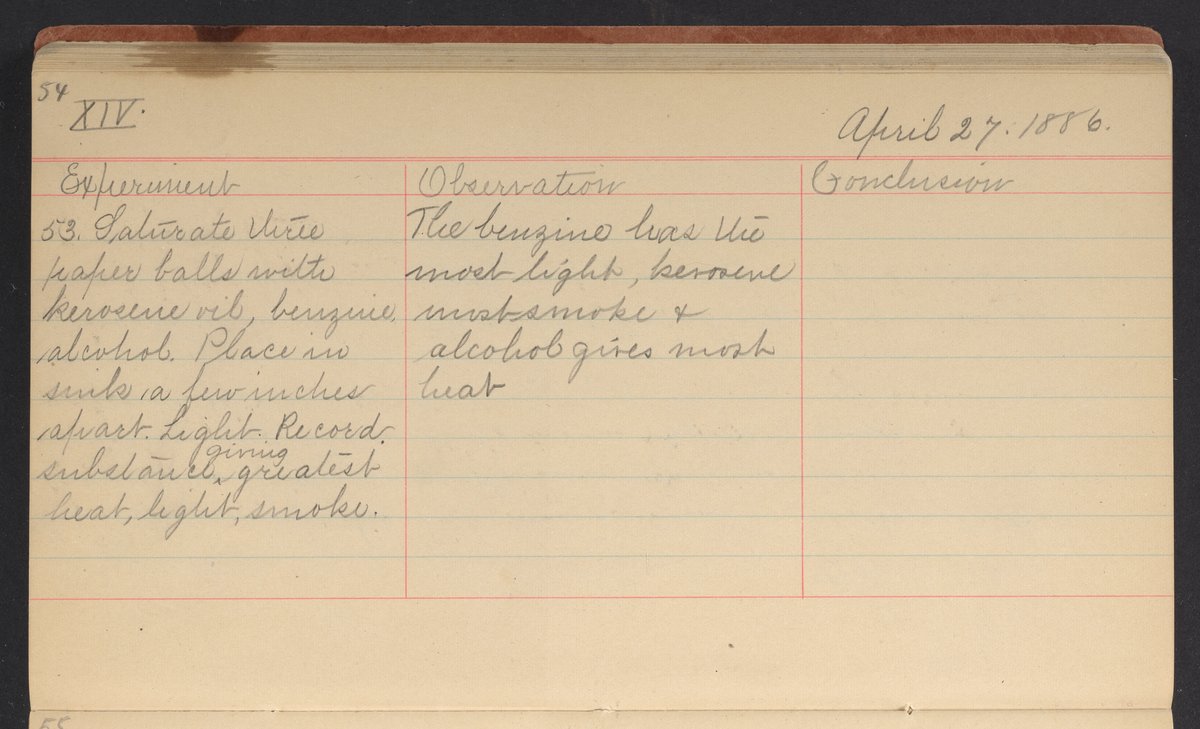 54
XIV.
April 27. 1886.
Experiment
Observation
Conclusion
53. Saturate three
paper balls with
kerosene oil, benzine,
alcohol. Place in
sink a few inches
apart. Light. Record
giving
substance ‸ greatest
heat, light, smoke.
The benzine has the
most light, kerosene
most smoke &
alcohol gives most
heat
55